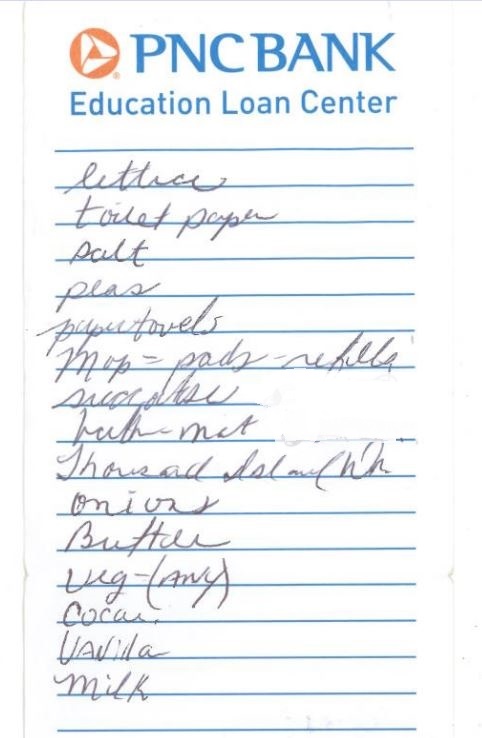 PNC BANK
Education Loan Center
lettuce
toilet paper
salt
peas
paper towels
Mop = pads - refills
bath-mat
Thousad Island
onions
Butter
Veg-(ANY)
Cocoa
VANilla
Milk